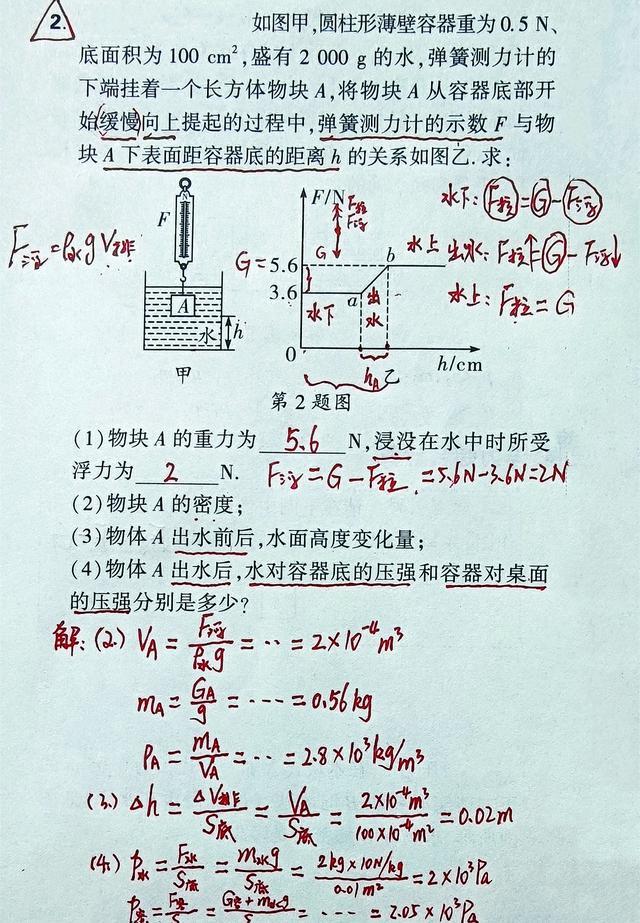 2.
如图甲,圆柱形薄壁容器重为0.5 N、
底面积为100 cm²,盛有2 000 g的水,弹簧测力计的
下端挂着一个长方体物块A,将物块A从容器底部开
始(缓慢)向上提起的过程中,弹簧测力计的示数F与物
块A下表面距容器底的距离h的关系如图乙.求:
F浮=ρ水gV排
F
A
水
h
甲
F/N
F拉
F浮
G
G=5.6
3.6
水下
a
出水
b
水上
0
hA
h/cm
乙
水下:F拉=G-F浮
出水:F拉↑=G-F浮↓
水上:F拉=G
第2题图
(1)物块A的重力为 5.6 N,浸没在水中时所受
浮力为 2 N. F浮=G-F拉=5.6N-3.6N=2N
(2)物块A的密度;
(3)物体A出水前后,水面高度变化量;
(4)物体A出水后,水对容器底的压强和容器对桌面
的压强分别是多少?
解:(2) VA=F浮/ρ水g=…=2×10⁻⁴m³
mA=GA/g=……=0.56kg
ρA=mA/VA=…=2.8×10³kg/m³
(3) Δh=ΔV排/S底=VA/S底=2×10⁻⁴m³/100×10⁻⁴m²=0.02m
(4) p水=F水/S底=m水g/S底=2kg×10N/kg/0.01m²=2×10³Pa
=……=2.05×10³Pa